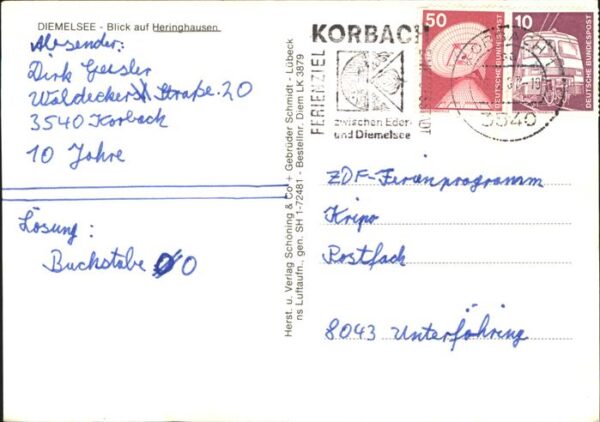 DIEMELSEE - Blick auf Heringhausen
Absender:
Dirk Geisler
Waldecker Straße 20
3540 Korbach
10 Jahre
Lösung:
Buchstabe O
Herst. u. Verlag Schöning & Co + Gebrüder Schmidt - Lübeck
ns Luftaufn., gen. SH 1-72481 - Bestellnr. Diem LK 3879
KORBACH
FERIENZIEL
zwischen Eder-
und Diemelsee
50
DEUTSCHE BUNDESPOST
10
DEUTSCHE BUNDESPOST
KORBACH 1
3540
ZDF-Ferienprogramm
Kripo
Postfach
8043 Unterföhring